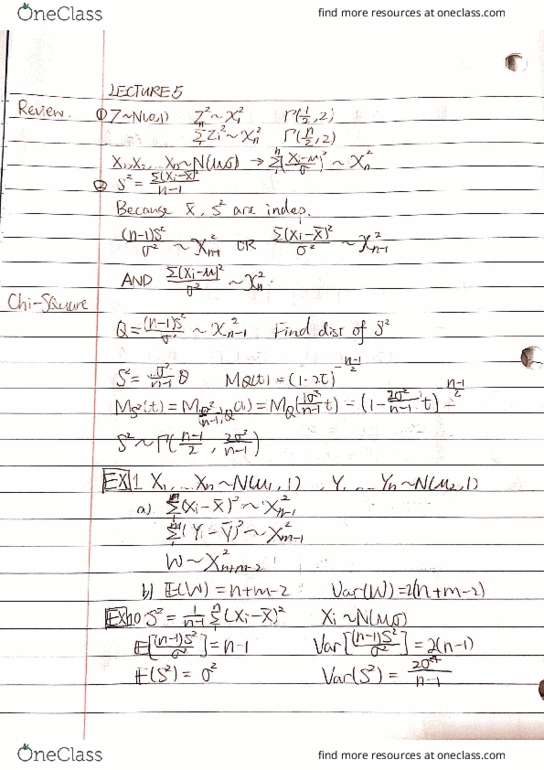 OneClass find more resources at oneclass.com
LECTURE 5
Review. ① Z~N(0,1) Z²~χ₁² Γ(1/2, 2)
ΣZᵢ²~χₙ² Γ(n/2, 2)
X₁, X₂, ... Xₙ~N(μ,σ) → Σ(Xᵢ-μ/σ)² ~ χₙ²
② S² = Σ(Xᵢ-X̄)²/n-1
Because X̄, S² are indep.
(n-1)S²/σ² ~ χ²ₙ₋₁ OR Σ(Xᵢ-X̄)²/σ² ~ χ²ₙ₋₁
AND Σ(Xᵢ-μ)²/σ² ~ χₙ².
Chi-Square
Q = (n-1)S²/σ² ~ χ²ₙ₋₁ Find dist of S²
S² = σ²/n-1 Q M_Q(t) = (1-2t)^-(n-1)/2
M_S²(t) = M_(σ²/n-1)Q(t) = M_Q(σ²/n-1 t) = (1 - 2σ²/n-1 t)^-(n-1)/2
S² ~ Γ(n-1/2, 2σ²/n-1)
EX1 X₁, ... Xₙ ~ N(μ₁, 1) , Y₁ ... Yₙ ~ N(μ₂, 1)
a) Σ(Xᵢ-X̄)² ~ χ²ₙ₋₁
Σ(Yᵢ-Ȳ)² ~ χ²ₘ₋₁
W ~ χ²ₙ₊ₘ₋₂
b) E(W) = n+m-2 Var(W) = 2(n+m-2)
EX10 S² = 1/n-1 Σ(Xᵢ-X̄)² Xᵢ ~ N(μ,σ)
E[(n-1)S²/σ²] = n-1 Var[(n-1)S²/σ²] = 2(n-1)
E(S²) = σ² Var(S²) = 2σ⁴/n-1
OneClass find more resources at oneclass.com